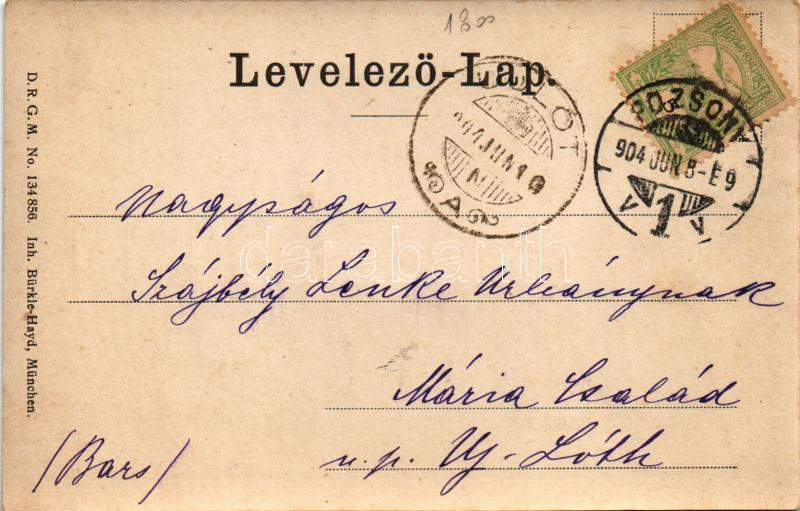 1800
Levelező-Lap.
POZSONY
904 JUN 8-E9
V 1 V
904 JUN 10
N
A
Nagyságos
Szájbély Lenke Urleánynak
Mária Család
u.p. Uj-Lóth
(Bars)
D. R. G. M. No. 134856. Inh. Bürkle-Hayd, München.
darabanth